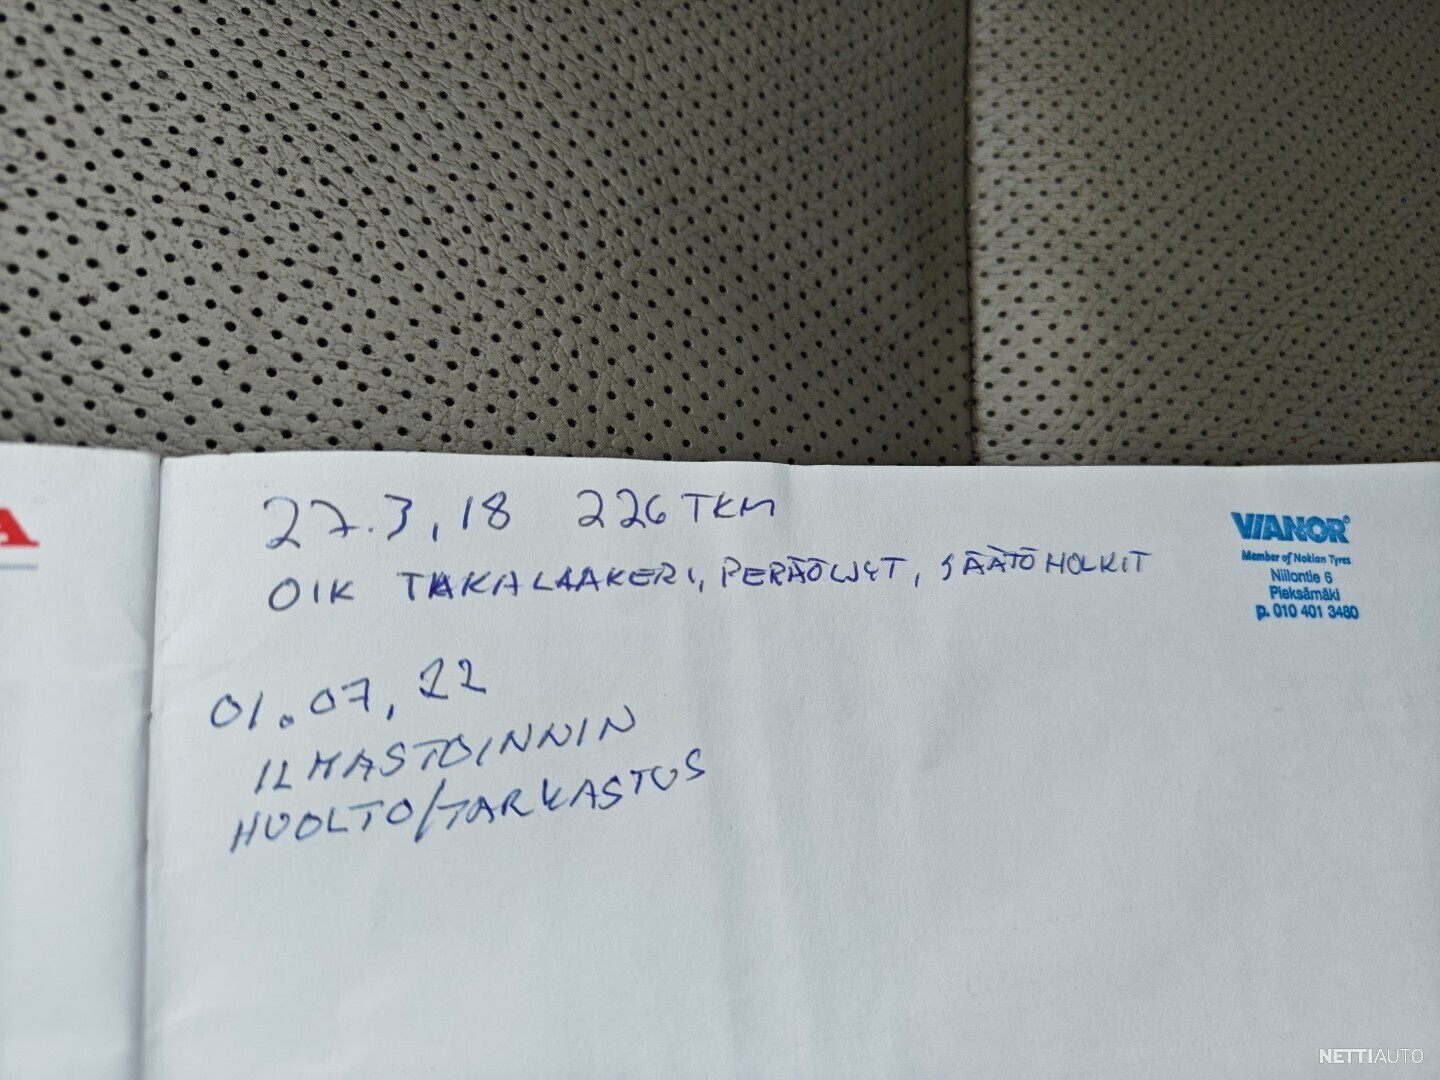 A
27.3.18 226 TKM
OIK TAKALAAKERI, PERÄÖLJYT, SÄÄTÖHOLKIT
VIANOR
Member of Nokian Tyres
Niilontie 6
Pieksämäki
p. 010 401 3480
01.07.22
ILMASTOINNIN
HUOLTO/TARKASTUS
NETTIAUTO